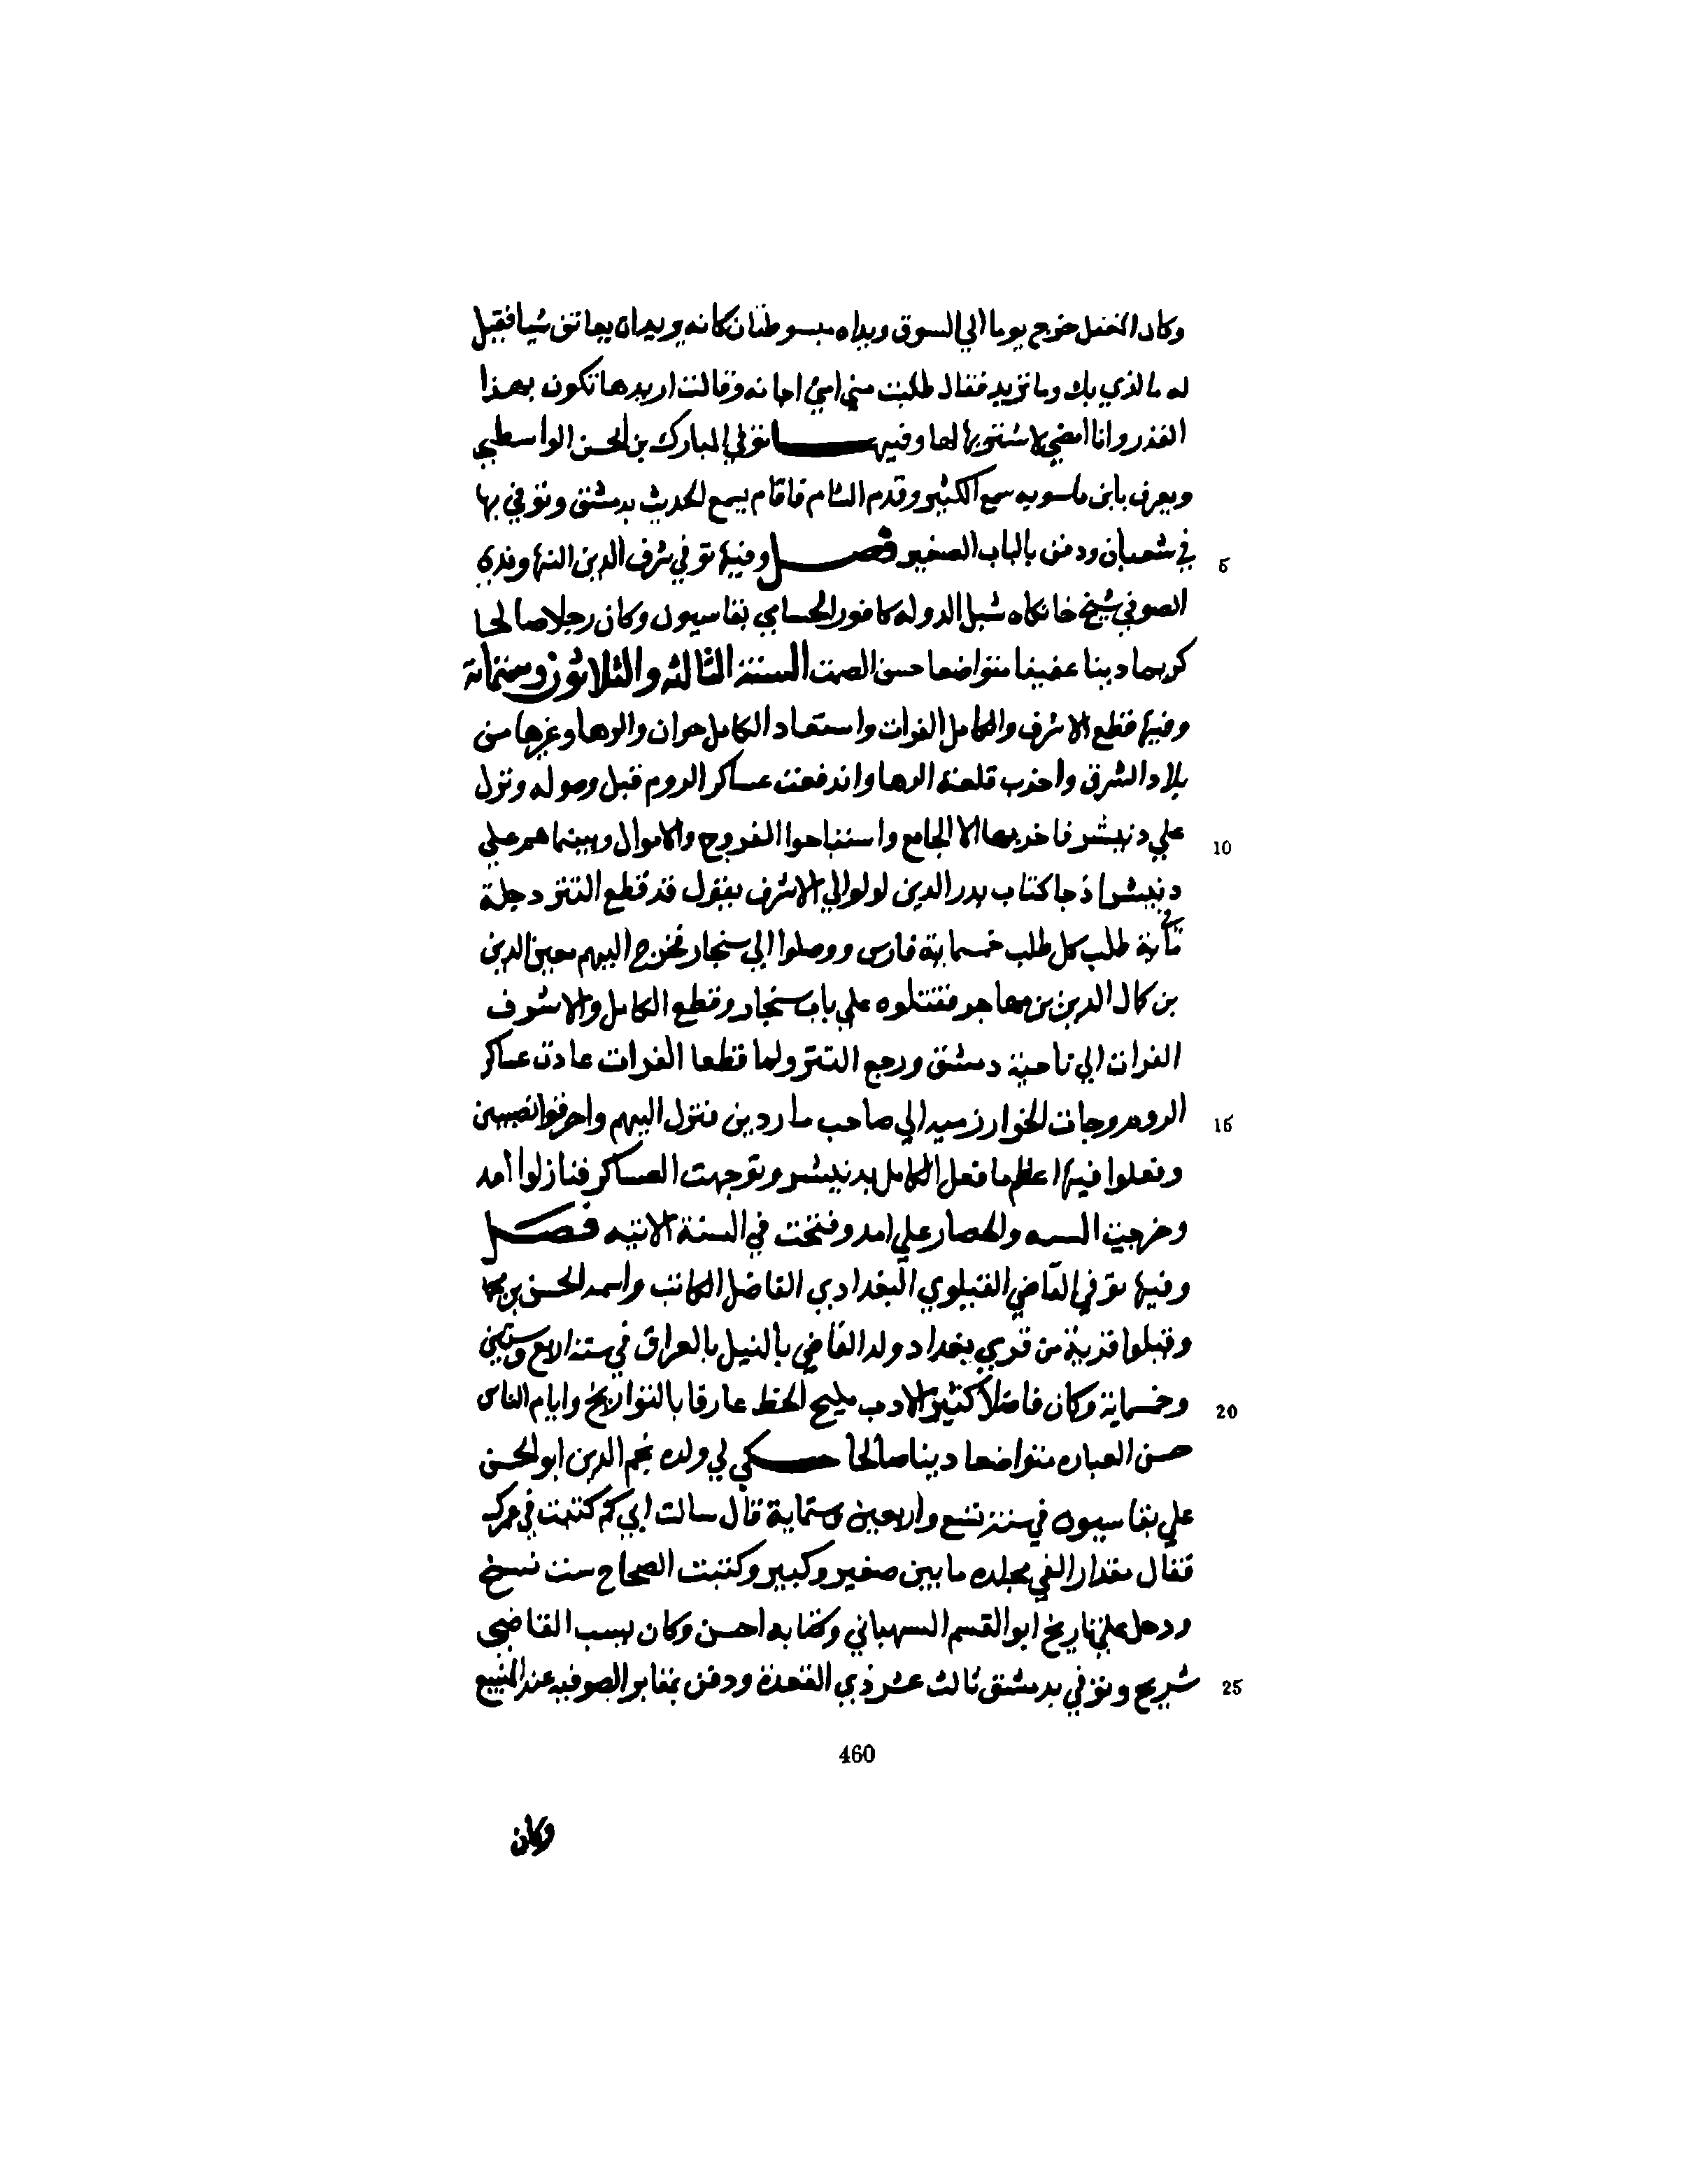 وكان المغفل خرج يوما الي السوق ويداه مبسوطتان كانه يريد ان يعانق شيا فقيل
له ما الذي بك وما تريد فقال طلبت مني امي اجانه وقالت اريدها تكون بهذا
القدر وانا امضي لاشتريها لها وفيها توفي المبارك بن الحسن الواسطي
ويعرف بابن ماسويه سمع الكثير وقدم الشام فاقام يسمع الحديث بدمشق وتوفي بها
5 في شعبان ودفن بالباب الصغير فصل وفيها توفي شرف الدين النهاوندي
الصوفي شيخ خانكاه شبل الدوله كافور الحسامي بقاسيون وكان رجلا صالحا
كريما دينا عفيفا متواضعا حسن الصمت السنة الثالثه والثلاثون وستمائة
وفيها قطع الاشرف والكامل الفرات واستعاد الكامل حران والرها وغيرها من
بلاد الشرق واخذب قلعة الرها واندفعت عساكر الروم قبل وصوله ونزل
10 علي دنيسر فاخربها الا الجامع واستباحوا الفروج والاموال وبينما هم علي
دنيسر اذ جا كتاب بدر الدين لولو الي الاشرف يقول قد قطع التتر دجلة
في مأية طلب كل طلب خمسماية فارس ووصلوا الي سنجار فخرج اليهم معين الدين
بن كمال الدين بن مهاجر فقتلوه علي باب سنجار وقطع الكامل والاشرف
الفرات الي ناحية دمشق ورجع التتر ولما قطعا الفرات عادت عساكر
15 الروم وجات الخوارزميه الي صاحب ماردين فنزل اليهم واحرقوا نصيبين
وفعلوا فيها اعظم ما فعل الكامل بدنيسر وتوجهت العساكر فنازلوا آمد
وخرجت السنه والحصار علي امد وفتحت في السنة الاتيه فصل
وفيها توفي القاضي القيلوي البغدادي الفاضل الكاتب واسمه الحسن بن محمد
وقيلوا قرية من قري بغداد ولد القاضي بالنيل بالعراق في سنة اربع وستين
20 وخمسماية وكان فاضلا كثير الادب مليح الخط عارفا بالتواريخ وايام الناس
حسن العباره متواضعا دينا صالحا حكي لي ولده نجم الدين ابو الحسن
علي بقاسيون في سنة تسع واربعين وستماية قال سالت ابي كم كتبت في عمرك
فقال مقدار الفي مجلده ما بين صغير وكبير وكتبت الصحاح ست نسخ
ودخل علي تاريخ ابو القسم السهباني وكتابه احسن وكان ينسب القاضي
25 شريح وتوفي بدمشق ثالث عشر ذي القعدة ودفن بمقابر الصوفيه عند المنيبع
460
وكان